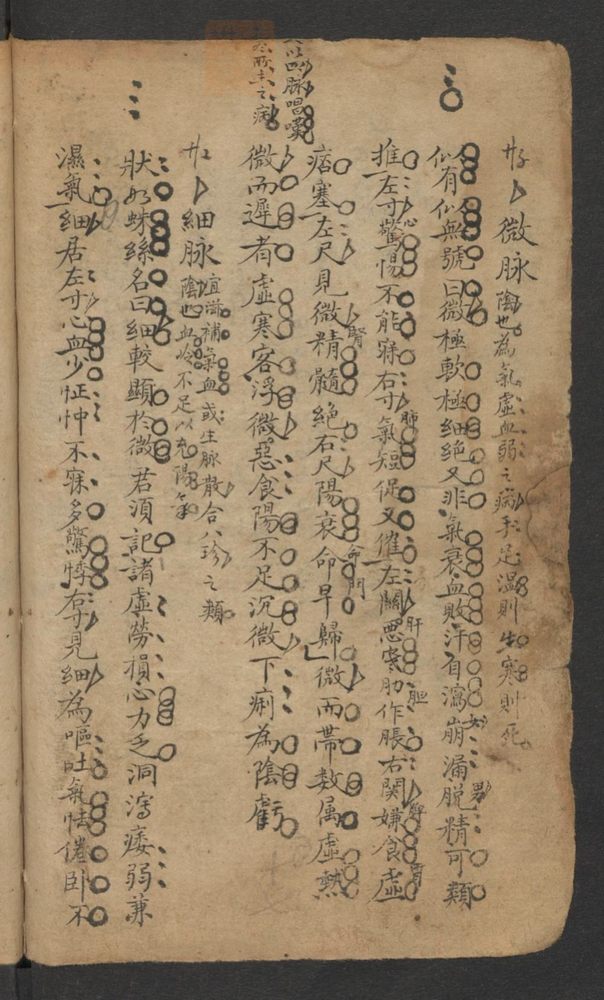 微脉 陰也為氣虛血弱之病手足溫則生寒則死
似有似無號曰微極軟極細絶又非氣衰血敗汗自瀉崩漏脱精可類
女 男
推左寸驚惕不能寐右寸氣短促又催左關惡寒肋作脹右関嫌食虛
心 肺 肝 胆 脾 胃
痞塞左尺見微精髓絕右尺陽衰命早歸微而帶数属虛熱
腎 命門
微而遲者虛寒客浮微惡食陽不足沉微下痢為陰虧
脉唱嘆
所主之病
細脉 宜滋補氣血或生脉散合八珍之類
陰也血冷不足以充陽氣
狀如蛛絲名曰細較顯於微君須記諸虛勞損心力乏洞瀉痿弱兼
濕氣細居左寸心血少怔忡不寐多驚悸右寸見細為嘔吐氣怯倦卧不